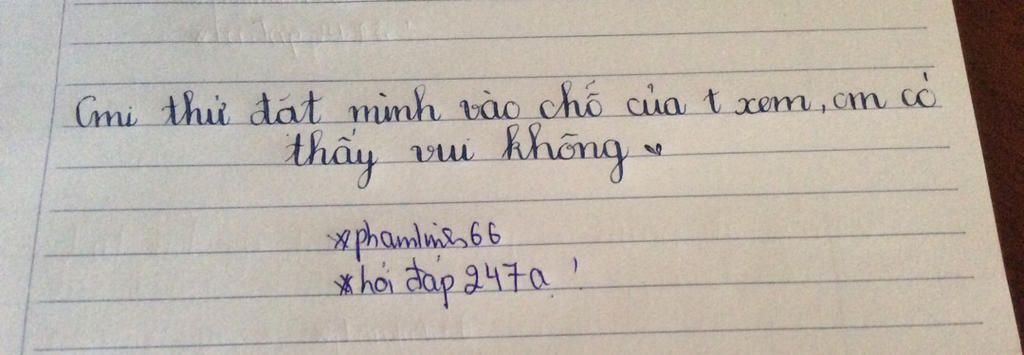 Cmi thử đát mình vào chỗ của t xem, cm có
thấy vui không
*phamlinis66
*hỏi đáp 247a !